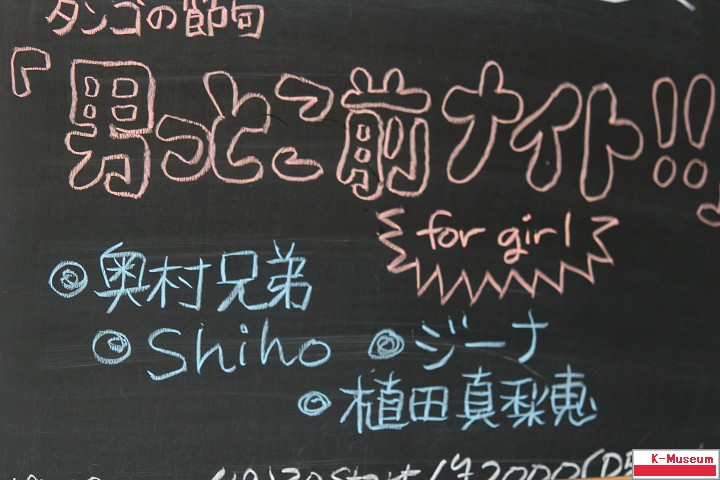 タンゴの節句
『男っとこ前ナイト!!』
for girl
◎奥村兄弟
◎Shiho ◎ジーナ
◎植田真梨恵
Start/¥2000(D
K-Museum